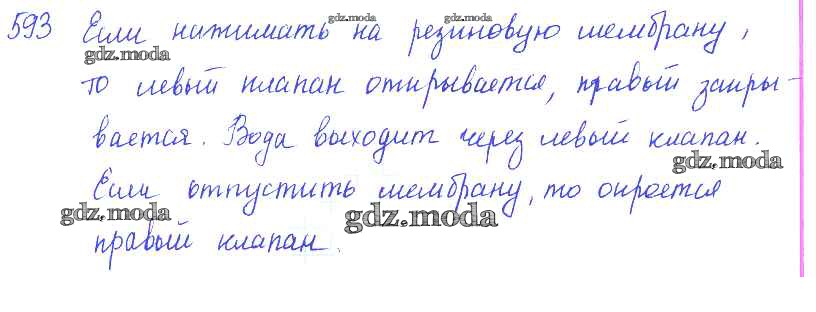 593 Если нажимать на резиновую мембрану,
то левый клапан открывается, правый закры-
вается. Вода выходит через левый клапан.
Если отпустить мембрану, то откроется
правый клапан.
gdz.moda
gdz.moda
gdz.moda
gdz.moda
gdz.moda
gdz.moda